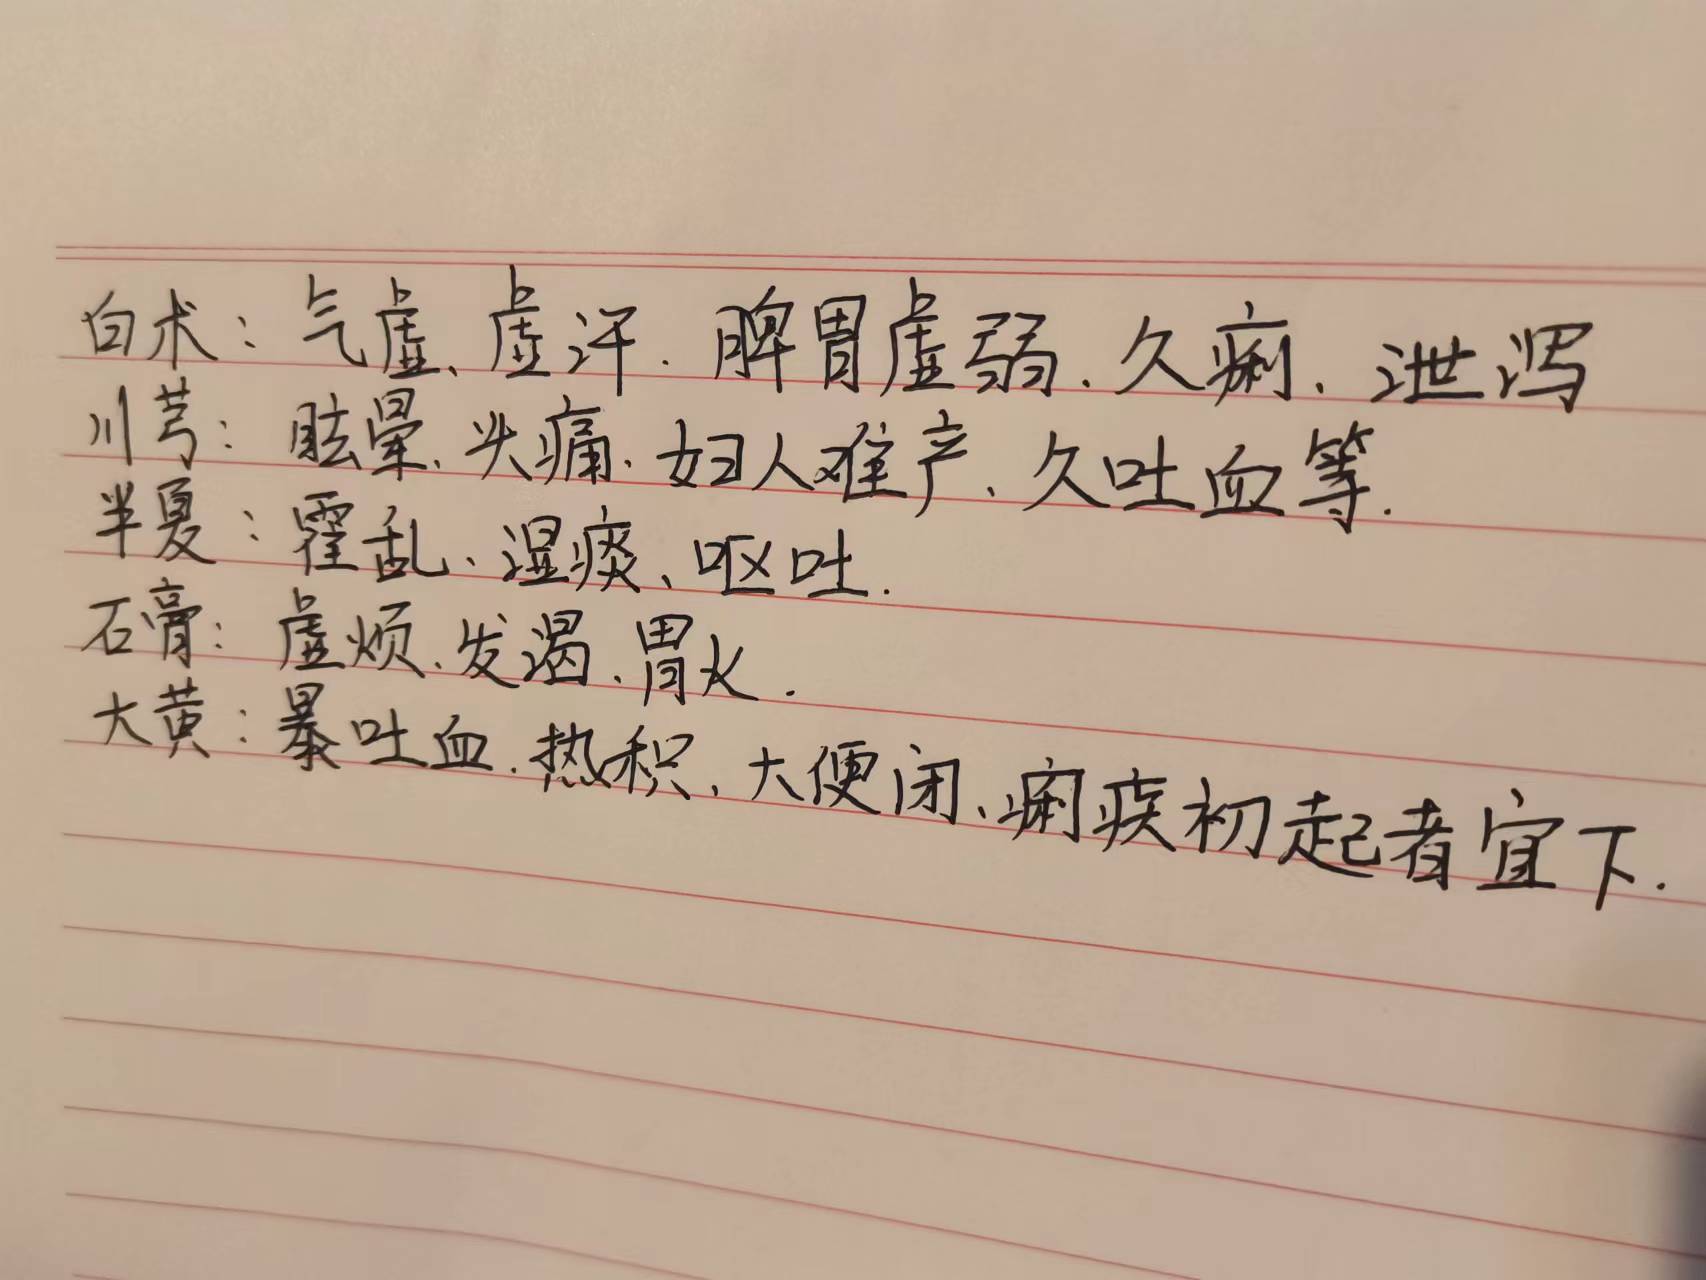 白术：气虚、虚汗.脾胃虚弱、久痢、泄泻
川芎：眩晕、头痛、妇人难产、久吐血等.
半夏：霍乱、湿痰、呕吐.
石膏：虚烦、发渴、胃火.
大黄：暴吐血、热积、大便闭、痢疾初起者宜下.